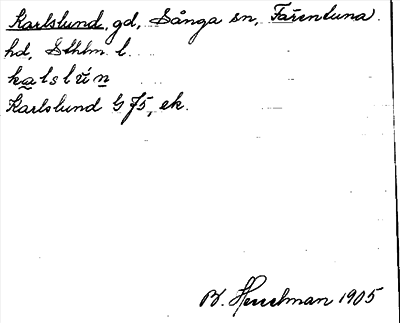 Karlslund, gd, Sånga sn, Färentuna
hd, Sthlm l.
kalslún
Karlslund G 75, ek.
B. Hesselman 1905